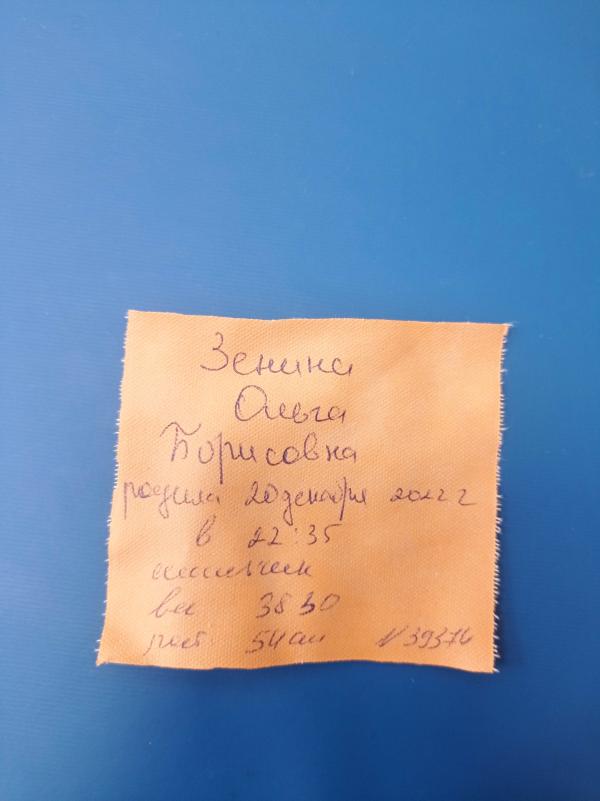 Зенина
Ольга
Борисовна
родила 20 декабря 2022 г
в 22:35
мальчик
вес 3830
рост: 54 см N 39376